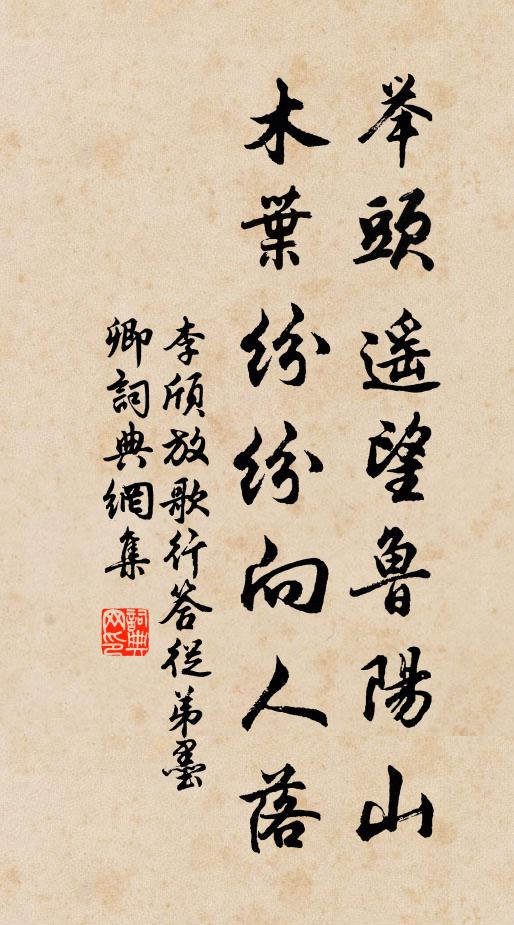 举頭遥望魯陽山
木葉紛紛向人落
李頎放歌行答從弟墨
卿詞典網集
詞典网印